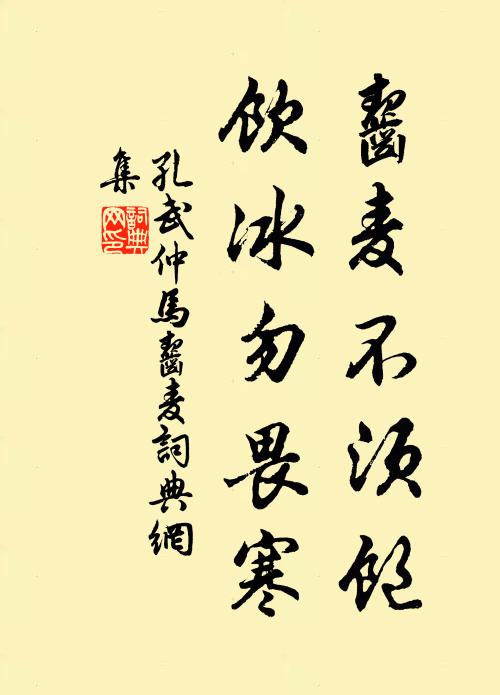 齧麦不須飽
飲冰勿畏寒
孔武仲馬齧麦詞典網
集
詞典網印